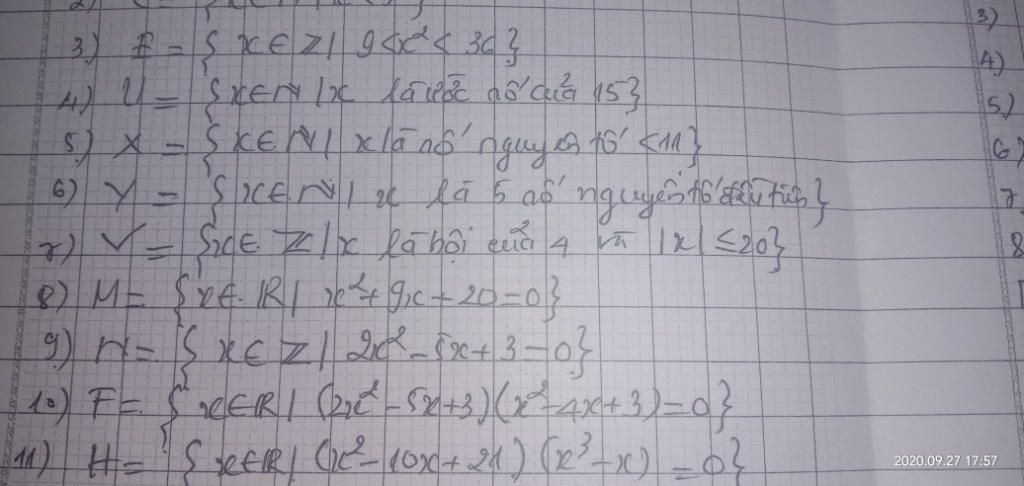 3)
3) E = { x ∈ Z | 9 < x² < 36 }
4)
4) U = { x ∈ N | x là ước số của 15 }
5)
5) X = { x ∈ N | x là số nguyên tố < 11 }
6)
6) Y = { x ∈ N | x là 5 số nguyên tố đầu tiên }
7
7) V = { x ∈ Z | x là bội của 4 và |x| ≤ 20 }
8
8) M = { x ∈ R | x² + 9x + 20 = 0 }
9) N = { x ∈ Z | 2x² - 5x + 3 = 0 }
10) F = { x ∈ R | (2x² - 5x + 3)(x² - 4x + 3) = 0 }
11) H = { x ∈ R | (x² - 10x + 21)(x³ - x) = 0 }
2020.09.27 17:57